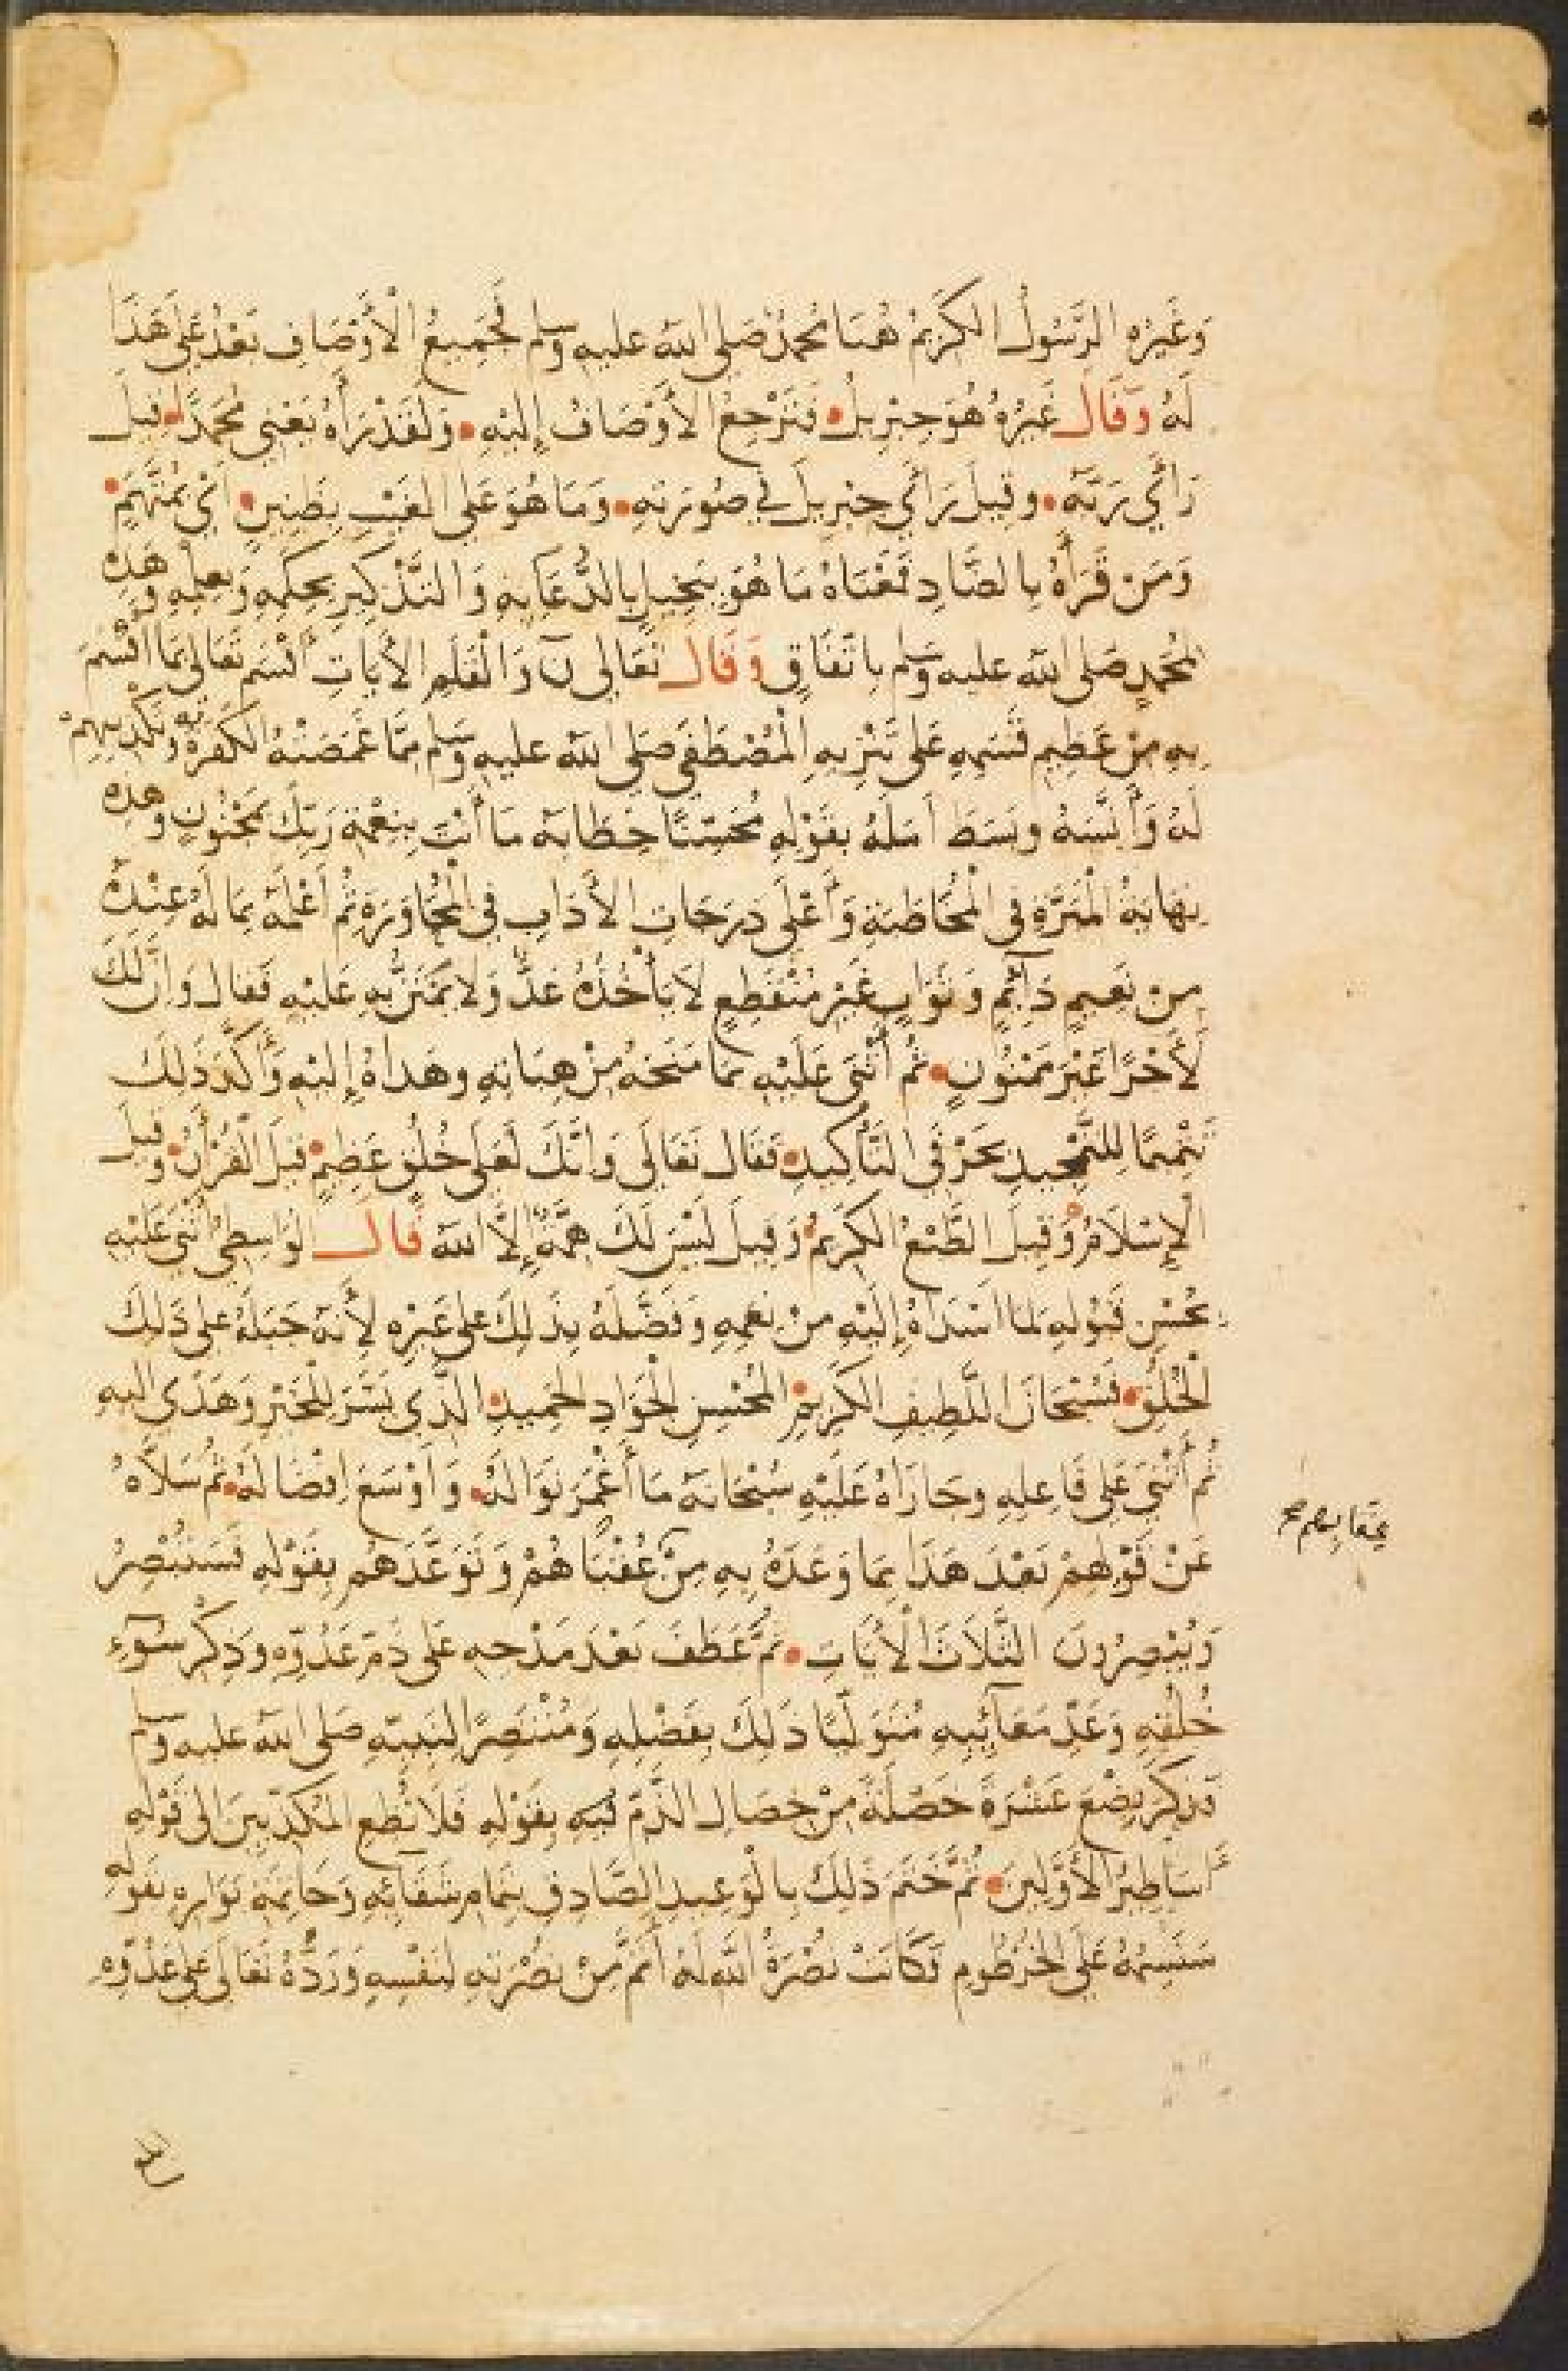 وَغَيْرُه الرَّسُولُ الكَرِيمُ هُنَا مُحَمَّدٌ صَلى الله عليه وسلم فَجَمِيعُ الْأَوْصَافِ بَعْدُ عَلَى هَذَا
لَهُ وَقَالَ غَيْرُهُ هُوَ جِبْرِيلُ فَتَرْجِعُ الأَوْصَافُ إِلَيْهِ وَلَقَدْ رَأَهُ يَعْنِي مُحَمَّدًا قِيلَ
رَأَي رَبَّهُ وقِيلَ رَأَي جِبْرِيلَ في صُورَتِهِ وَمَا هُوَ عَلَى الغَيْبِ بِظَنِينٍ أَيْ بِمُتَّهَمٍ
وَمَنْ قَرَأَهُ بِالضَّادِ فَمَعْنَاهُ مَا هُوَ بِبَخِيلٍ بِالدُّعَاءِ بِهِ وَالتَّذْكِيرِ بِحِكَمِهِ وَبِعِلْمِهِ وَهَذِهِ
لِمُحَمَّدٍ صَلى الله عليه وسلم بِاتِّفَاقٍ وَقَالَ تَعَالى نٓ وَالْقَلَمِ الْأَيَاتِ أَقْسَمَ تَعَالى بِمَا أَقْسَمَ
بِهِ مِنْ عَظِيمِ قَسَمِهِ عَلى تَنْزِيهِ الْمُصْطَفَى صَلى الله عليه وسلم مِمَّا غَمَصَتْهُ الكَفَرَةُ بِهِ وَتَكْذِيبِهِمْ
لَهُ وَأَنَّسَهُ وبَسَطَ أَمَلَهُ بِقَوْلِهِ مُحَسِّنًا خِطَابَهُ مَا أَنْتَ بِنِعْمَةِ رَبِّكَ بِمَجْنُونٍ وهَذِهِ
نِهَايَةُ الْمَبَرَّةِ فِي الْمُخَاطَبَةِ وَأَعْلَى دَرَجَاتِ الأَدَابِ في الْمُحَاوَرَةِ ثُمَّ أَعْلَمَهُ بِمَا لَهُ عِنْدَهُ
مِنْ نَعِيمٍ دَائِمٍ وَثَوَابٍ غَيْرِ مُنْقَطِعٍ لاَ يَأْخُذُهُ عَدٌّ وَلا يَمْتَنُّ بِهِ عَلَيْهِ فَقَالَ وَإِنَّ لَكَ
لَأَجْرًا غَيْرَ مَمْنُونٍ ثُمَّ أَثْنَى عَلَيْهِ بِمَا مَنَحَهُ مِنْ هِبَاتِهِ وهَدَاهُ إِلَيْهِ وَأَكَّدَ ذَلِكَ
تَتْمِيمًا لِلتَّمْجِيدِ بِحَرْفَيِ التَّأْكِيدِ فَقَالَ تَعَالَى وَإِنَّكَ لَعَلَى خُلُقٍ عَظِيمٍ قِيلَ الْقُرْأَنُ وَقِيلَ
الْإِسْلَامُ وَقِيلَ الطَّبْعُ الكَرِيمُ وَقِيلَ لَيْسَ لَكَ هِمَّةٌ إِلَّا الله قَالَ الوَاسِطِيُّ أَثْنَى عَلَيْهِ
بِحُسْنِ قَبُولِهِ لِمَا أَسْدَاهُ إِلَيْهِ مِنْ نِعَمِهِ وَفَضَّلَهُ بِذَلِكَ عَلَى غَيْرِهِ لِأَنَّهُ جَبَلَهُ عَلَى ذَلِكَ
الْخُلُقِ فَسُبْحَانَ اللَّطِيفِ الكَرِيمِ الْمُحْسِنِ الْجَوَادِ الْحَمِيدِ الَّذِي يَسَّرَ لِلْخَيْرِ وَهَدَى إليه
ثُمَّ أَثْنَى عَلَى فَاعِلِهِ وجَازَاهُ عَلَيْهِ سُبْحَانَهُ مَا أَغْمَرَ نَوَالَهُ وَأَوْسَعَ إِفْضَالَهُ ثُمَّ سَلَّاهُ
عَنْ قَوْلِهِمْ بَعْدَ هَذَا بِمَا وَعَدَهُ بِهِ مِنْ عُقْبَاهُمْ وَتَوَعَّدَهُمْ بِقَوْلِهِ فَسَتُبْصِرُ
بعقابهم
وَيُبْصِرُونَ الثَّلَاثَ الْأَيَاتِ ثُمَّ عَطَفَ بَعْدَ مَدْحِهِ عَلَى ذَمِّ عَدُوِّهِ وَذِكْرِ سُوءِ
خُلُقِهِ وَعَدِّ مَعَائِبِهِ مُتَوَلِّيًا ذَلِكَ بِفَضْلِهِ وَمُنْتَصِرًا لِنَبِيِّهِ صَلى الله عليه وسلم
فَذَكَرَ بِضْعَ عَشْرَةَ خَصْلَةً مِنْ خِصَالِ الذَّمِّ فِيهِ بِقَوْلِهِ فَلَا تُطِعِ الْمُكَذِّبِينَ إلى قَوْلِهِ
أَسَاطِيرُ الأَوَّلِينَ ثُمَّ خَتَمَ ذَلِكَ بِالْوَعِيدِ الصَّادِقِ بِتَمَامِ شَقَائِهِ وَخَاتِمَةِ بَوَارِهِ بِقَوْلِهِ
سَنَسِمُهُ عَلَى الْخُرْطُومِ فَكَانَتْ نُصْرَةُ اللَّهِ لَهُ أَتَمَّ مِنْ نُصْرَتِهِ لِنَفْسِهِ وَرَدُّهُ تَعَالَى عَلَى عَدُوِّهِ